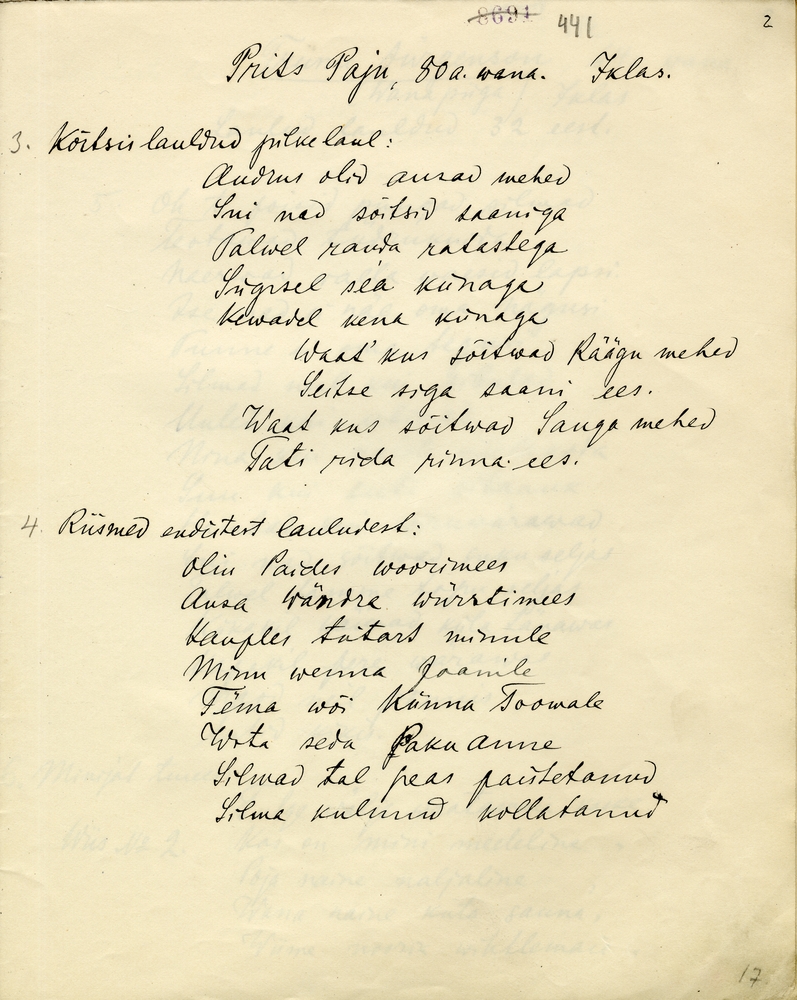 8691 441 2
Prits Paju, 80 a. wana. Iklas.
3. Kõitsis lauldud pilkelaul:
Audrus olid ausad mehed
Sui nad sõitsid saaniga
Talwel randa ratastega
Sügisel sea künaga
Kewadel kena künaga
Waat' kus sõitwad Räägu mehed
Seitse siga saani ees.
Waat kus sõitwad Sauga mehed
Tati rida rinna ees.
4. Riismed endistest lauludest:
Olin Paides woorimees
Ausa Wändra würstimees
Kauples tütart minule
Minu wenna Joanile
Tema wõi Künna Toowale
Wota seda Paku Anne
Silmad tal peas paistetanud
Silma kulmud kollatanud
17